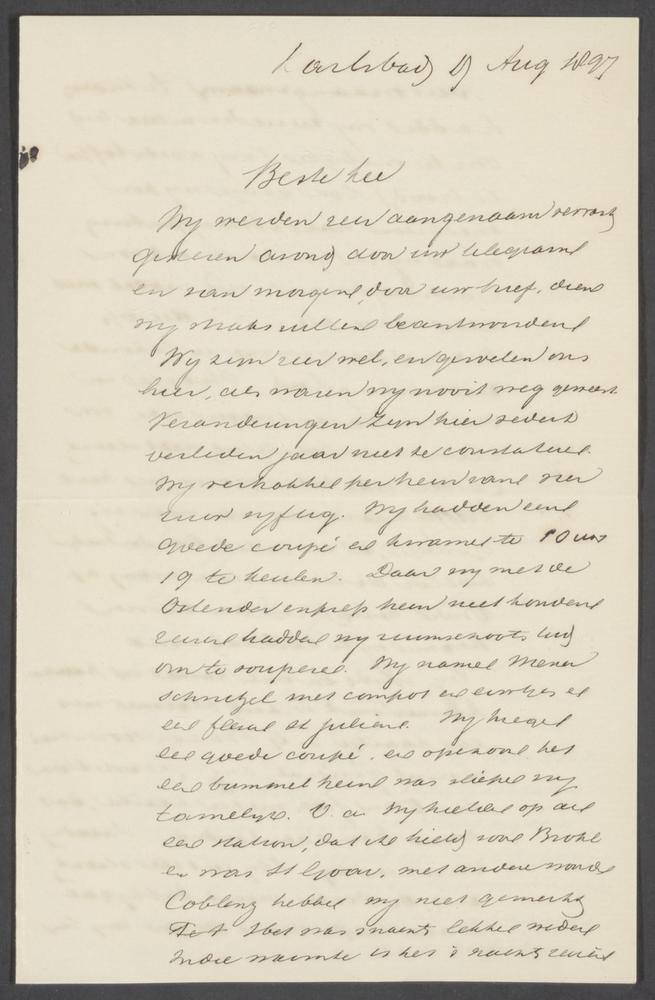 Karlsbad 9 Aug 1897
Beste
Wy werden zeer aangenaam verrast
gisteren avond door uw telegram
en van morgen, door uw brief, dien
wy straks zullen beantwoorden
Wy zyn zeer wel, en gevoelen ons
hier, als waren wy nooit weg geweest
Veranderingen zyn hier sedert
verleden jaar niet te constateeren.
Wy vertrokken per trein van
zuur vyf Wy hadden een
goede coupé en kwamen te 10 uur
19 te Keulen. Daar wy met de
Ostender exprestrein niet konden
hadden wy tyd
om te soupeeren. Wy namen Wiener
schnitzel met compot en en
een flesch St Julien. Wy kregen
een goede coupé, en het
een bummeltrein was sliepen wy
tamelyk. U. a. Wy hielden op aan
een station, dat ik hield voor Brohl
en was St Goar, met andere woorden
Coblenz hebben wy niet gemerkt
Het was snachts lekker
In die warmte is het 's nachts